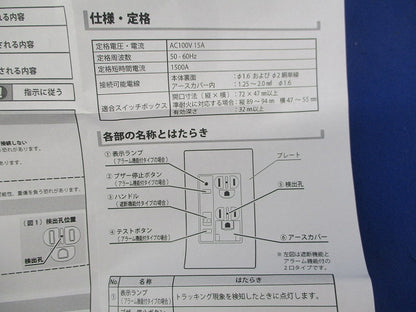 される内容
される内容
指示に従う
接続しない
（図1）検出孔位置
検出孔
仕様・定格
定格電圧・電流 AC100V 15A
定格周波数 50 - 60Hz
定格短時間電流 1500A
接続可能電線
本体裏面 ：φ1.6 および φ2 銅単線
アースカバー内 ：1.25 ～ 2.0㎟ φ1.6
適合スイッチボックス
開口寸法（縦 × 横）：72 × 47㎜以上
準耐火に対応する場合：縦 89～94㎜ 横 47～55㎜
有効深さ ：32㎜以上
各部の名称とはたらき
①表示ランプ
（アラーム機能付タイプの場合）
②ブザー停止ボタン
（アラーム機能付タイプの場合）
③ハンドル
（遮断機能付タイプの場合）
④テストボタン
（アラーム機能付タイプの場合）
プレート
⑤検出孔
⑥アースカバー
※左図は遮断機能と
アラーム機能付の
2口タイプです。
No 名称 はたらき
① 表示ランプ
（アラーム機能付タイプの場合）
トラッキング現象を検知したときに点灯します。